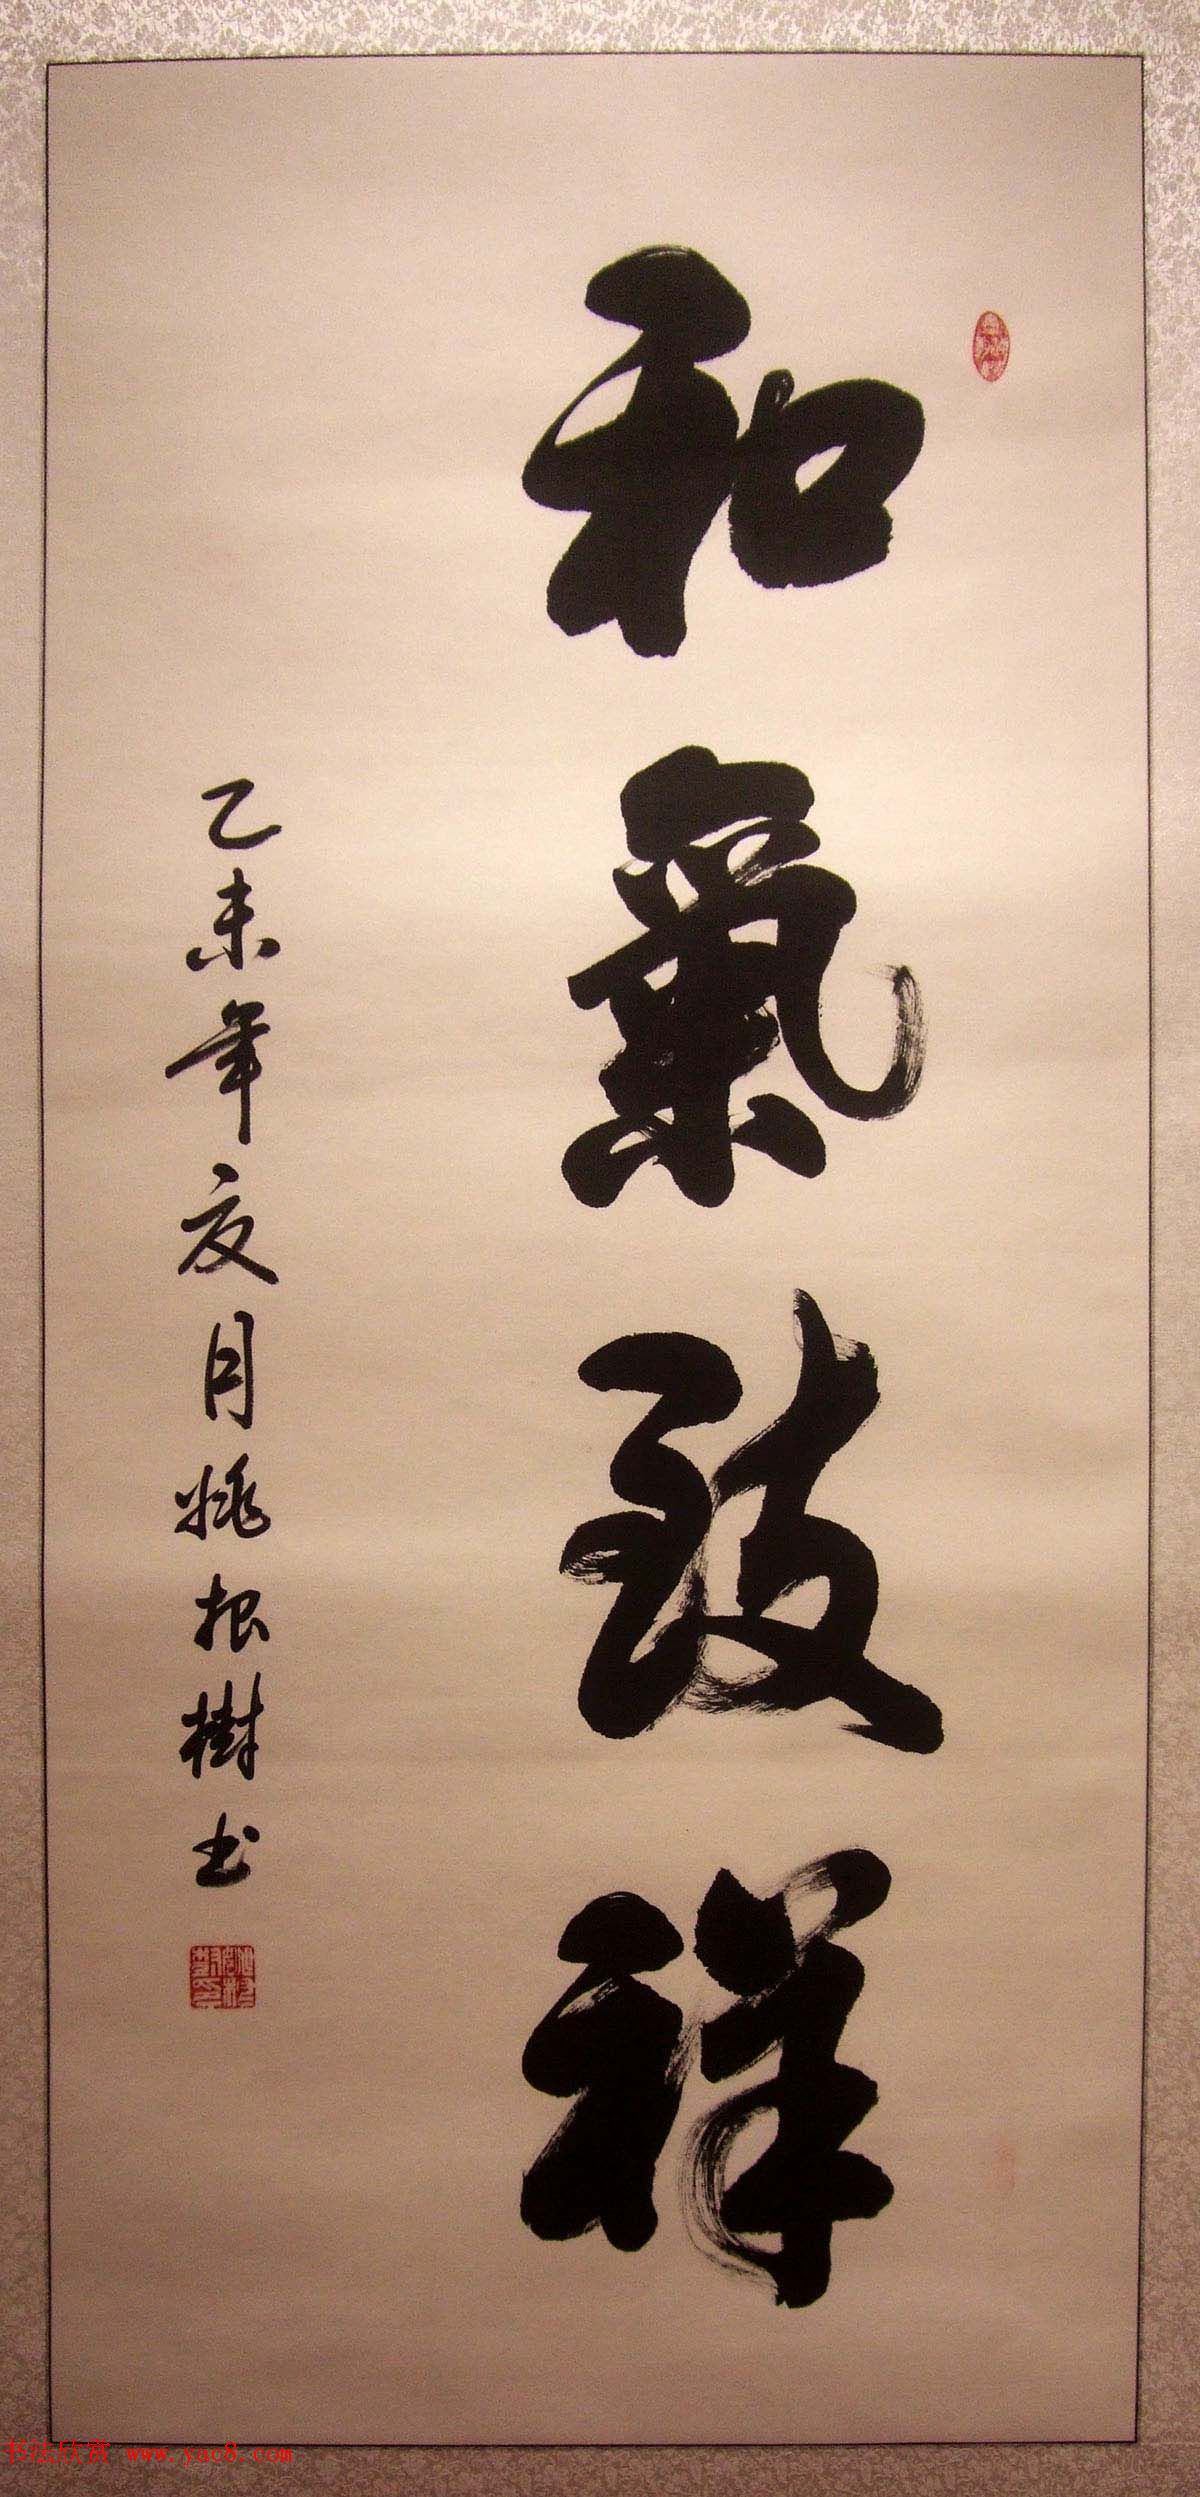 和氣致祥
乙未年夏月姚根樹书
书法欣赏 www.yac8.com